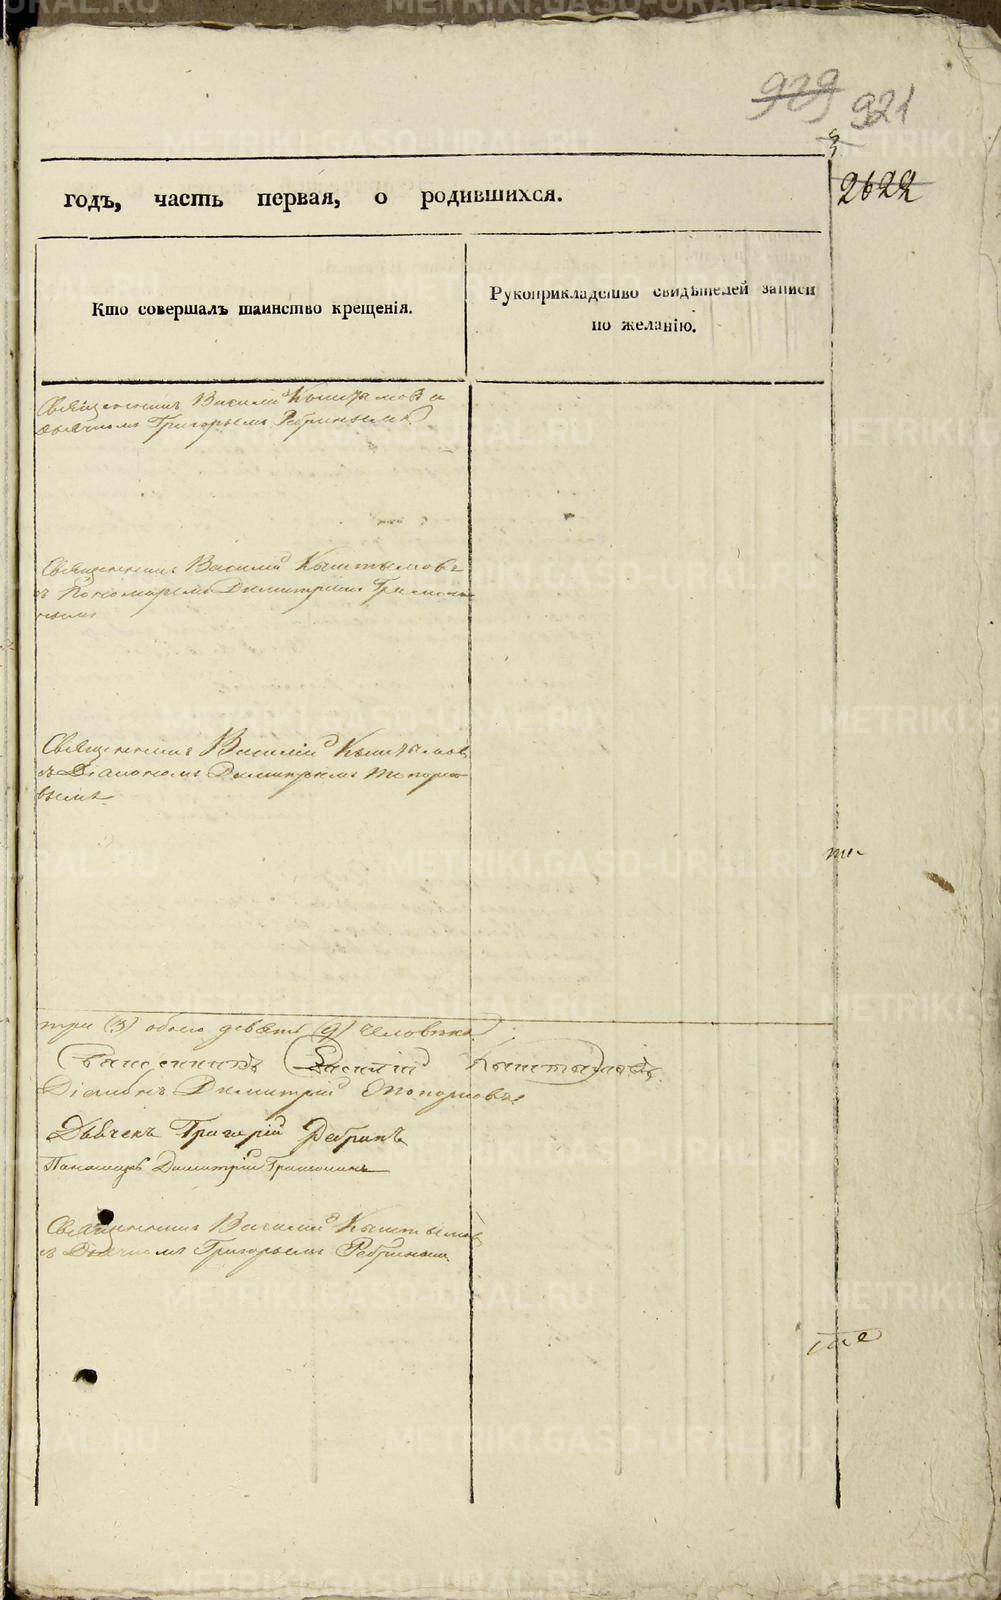 929 921
2622
годъ, часть первая, о родившихся.
Кто совершалъ таинство крещенія.
Рукоприкладство свидѣтелей записи
по желанію.
Священникъ Василій Кыштымовъ с
дьячкомъ Григорьемъ Ребринымъ
Священникъ Василій Кыштымовъ
съ Пономаремъ Димитріемъ
Священникъ Василій Кыштымов
съ Діакономъ Димитріемъ Топорко
вымъ
три (3) обоего девять (9) человѣка
Священникъ Василій Кыштымовъ
Діаконъ Димитрій Топорковъ
Дьячекъ Григорій Ребринъ
Пономарь Димитрій
Священникъ Василій Кыштымов
съ Дьячкомъ Григорьемъ Ребринымъ
METRIKI.GASO-URAL.RU